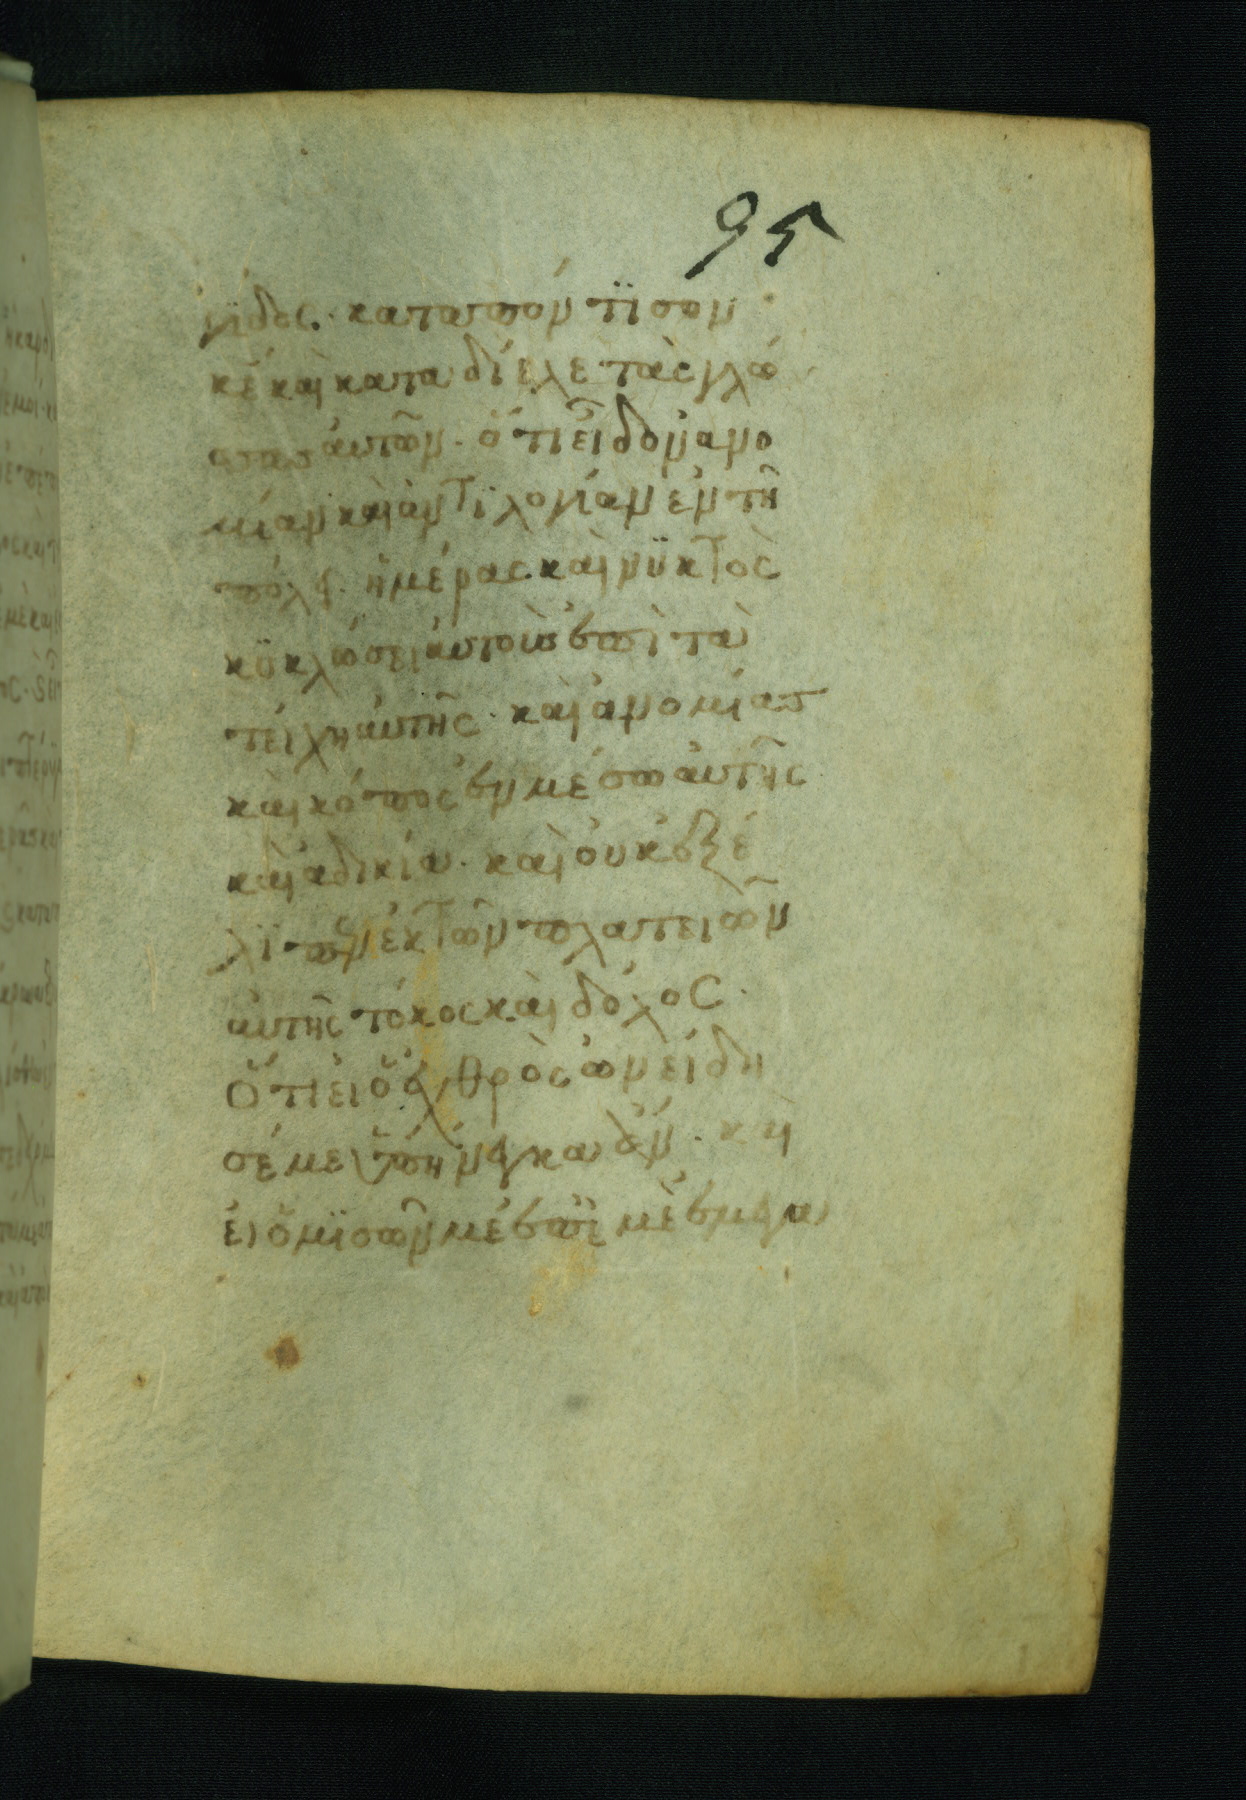 ϟϛ
γίδος· καταπόντϊσον
κέ καὶ κατα δίελε τὰς γλώ
σσασ αυτῶν· ὅτι εἶδον ἀνο
μίαν καὶ ἀντϊλογίαν ἐν τῆ
πόλει· ἡμέρας καὶ νϋκτὸς
κϋκλώσει αυτοὺσ ἐπὶ τὰ
τείχη ἀυτῆς· καὶ ἀνομίασ
καὶ κόπος ἐν μέσω ἀυτῆς
καὶ αδικία· καὶ ὀυκ ἐξέ
λϊπεν ἐκ τῶν πλατειῶν
ἀυτῆς τόκος καὶ δόλος·
Ὅτι εἰ ὅ ἐχθρὸς ὠνείδη
σέ με ὑπήνεγκα ἄν· κὶ
ἐι ὅ μϊσῶν μέ ἐπϊ μὲ ἐμεγα